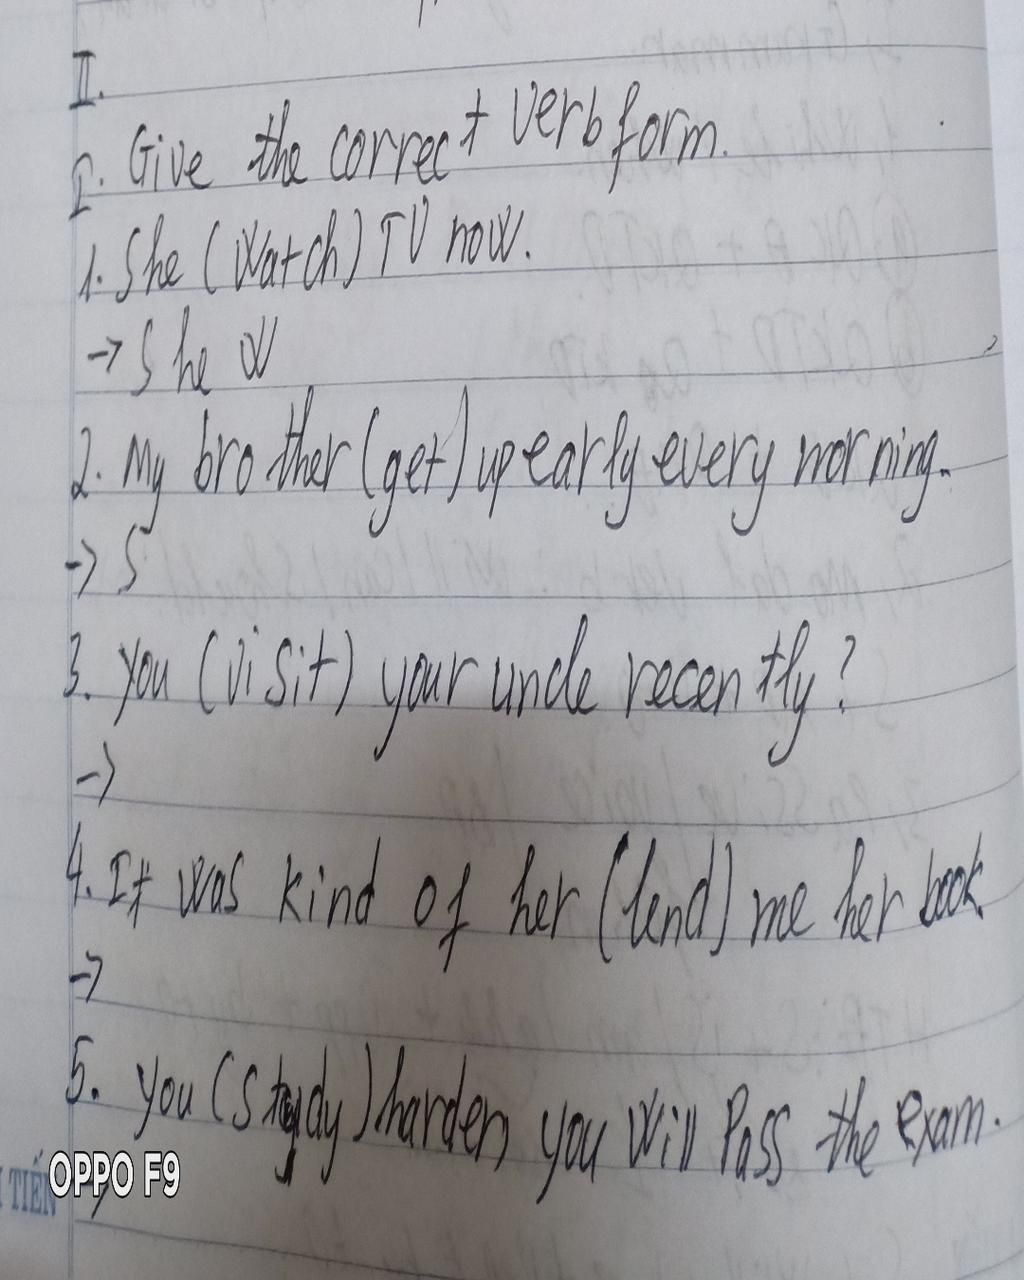 II.
I. Give the correct verb form.
1. She (Watch) TV now.
→ She W
2. My brother (get) up early every morning.
→ S
3. you (visit) your uncle recently?
→
4. It was kind of her (lend) me her book.
→
5. you (study) harder, you will Pass the exam.
TIẾN
OPPO F9